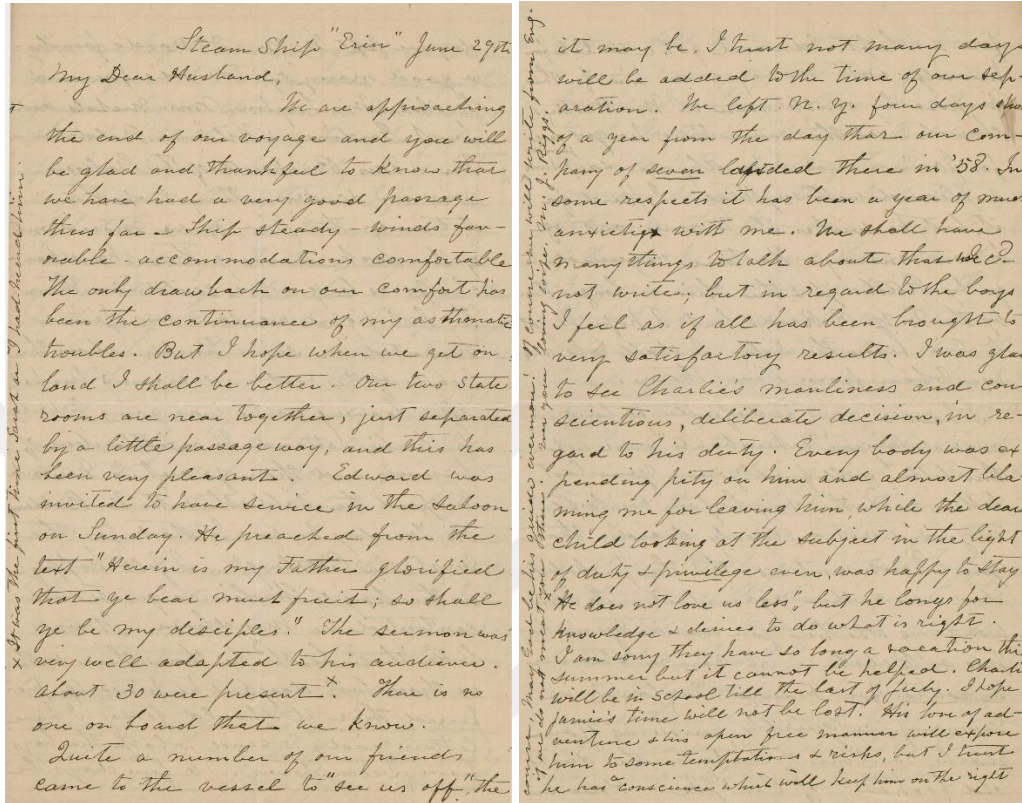 Steam Ship "Erin" June 29th
My Dear Husband,
We are approaching
the end of our voyage and you will
be glad and thankful to know that
we have had a very good passage
thus far - Ship steady - winds fav-
orable - accommodations comfortable
The only drawback on our comfort has
been the continuance of my asthmatic
troubles. But I hope when we get on
land I shall be better. Our two state
rooms are near together, just separated
by a little passage way, and this has
been very pleasant. Edward was
invited to have service in the saloon
on Sunday. He preached from the
text "Herein is my Father glorified
that ye bear much fruit; so shall
ye be my disciples." The sermon was
very well adapted to his audience.
about 30 were present x. There is no
one on board that we know.
Quite a number of our friends
came to the vessel to "see us off", the
x It was the first time Sarah or I had heard him.
it may be. I trust not many days
will be added to the time of our sep-
aration. We left N. Y. four days
of a year from the day that our com-
pany of seven landed there in '58. In
some respects it has been a year of much
anxiety with me. We shall have
many things to talk about that we
not write; but in regard to the boys
I feel as if all has been brought to
very satisfactory results. I was glad
to see Charlie's manliness and con
scientious, deliberate decision, in re-
gard to his duty. Every body was ex
pending pity on him and almost bla
ming me for leaving him, while the dear
child looking at the subject in the light
of duty & privilege even, was happy to stay
"He does not love us less", but he longs for
knowledge & desires to do what is right.
I am sorry they have so long a vacation this
summer but it cannot be helped. Charlie
will be in School till the last of July. I hope
Jamie's time will not be lost. His love of ad-
venture & his open free manner will expose
him to some temptations & risks, but I trust
he has a conscience which will keep him on the right
course, May God be his guide evermore! Of course we will write from Eng.
if we do not meet you there. Ever your loving wife. M. J. Riggs.